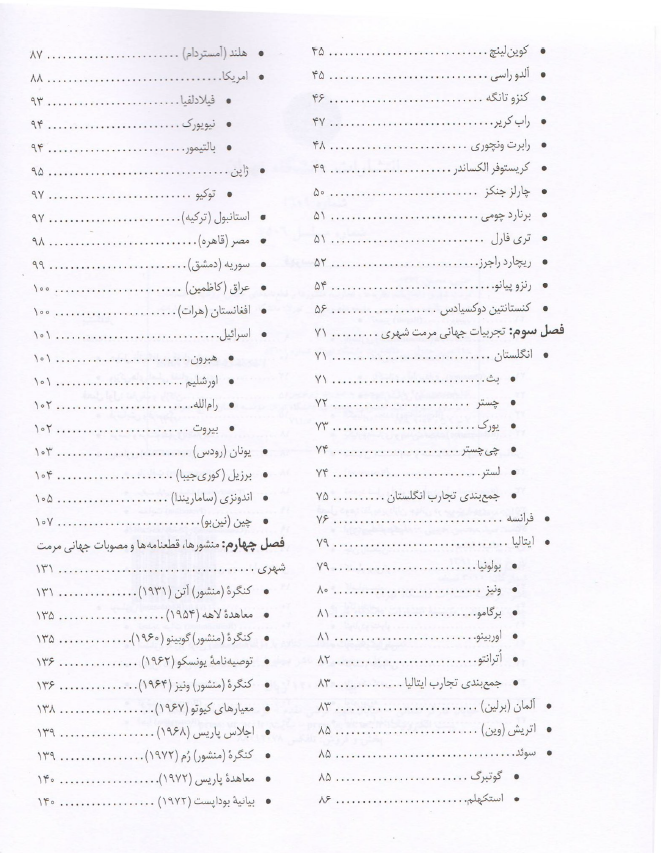 • کوین‌لینچ ........................ ۴۵
• آلدو راسی ........................ ۴۵
• کنزو تانگه ........................ ۴۶
• راب کریر ........................ ۴۷
• رابرت ونچوری ........................ ۴۸
• کریستوفر الکساندر ........................ ۴۹
• چارلز جنکز ........................ ۵۰
• برنارد چومی ........................ ۵۱
• تری فارل ........................ ۵۱
• ریچارد راجرز ........................ ۵۲
• رنزو پیانو ........................ ۵۴
• کنستانتین دوکسیادس ........................ ۵۶
فصل سوم: تجربیات جهانی مرمت شهری ......... ۷۱
• انگلستان ........................ ۷۱
• بث ........................ ۷۱
• چستر ........................ ۷۲
• یورک ........................ ۷۳
• چی‌چستر ........................ ۷۴
• لستر ........................ ۷۴
• جمع‌بندی تجارب انگلستان .......... ۷۵
• فرانسه ........................ ۷۶
• ایتالیا ........................ ۷۹
• بولونیا ........................ ۷۹
• ونیز ........................ ۸۰
• برگامو ........................ ۸۱
• اوربینو ........................ ۸۱
• اُترانتو ........................ ۸۲
• جمع‌بندی تجارب ایتالیا ............ ۸۳
• آلمان (برلین) ........................ ۸۳
• اتریش (وین) ........................ ۸۵
• سوئد ........................ ۸۵
• گوتبرگ ........................ ۸۵
• استکهلم ........................ ۸۶
• هلند (آمستردام) ........................ ۸۷
• امریکا ........................ ۸۸
• فیلادلفیا ........................ ۹۳
• نیویورک ........................ ۹۴
• بالتیمور ........................ ۹۴
• ژاپن ........................ ۹۵
• توکیو ........................ ۹۷
• استانبول (ترکیه) ........................ ۹۷
• مصر (قاهره) ........................ ۹۸
• سوریه (دمشق) ........................ ۹۹
• عراق (کاظمین) ........................ ۱۰۰
• افغانستان (هرات) ........................ ۱۰۰
• اسرائیل ........................ ۱۰۱
• هبرون ........................ ۱۰۱
• اورشلیم ........................ ۱۰۱
• رام‌الله ........................ ۱۰۲
• بیروت ........................ ۱۰۲
• یونان (رودس) ........................ ۱۰۳
• برزیل (کوری‌جیبا) ........................ ۱۰۴
• اندونزی (ساماریندا) ........................ ۱۰۵
• چین (نین‌بو) ........................ ۱۰۷
فصل چهارم: منشورها، قطعنامه‌ها و مصوبات جهانی مرمت
شهری ........................ ۱۳۱
• کنگرهٔ (منشور) آتن (۱۹۳۱) ............... ۱۳۱
• معاهدهٔ لاهه (۱۹۵۴) ............... ۱۳۵
• کنگرهٔ (منشور) گوبینو (۱۹۶۰) ............... ۱۳۵
• توصیه‌نامهٔ یونسکو (۱۹۶۲) ............... ۱۳۶
• کنگرهٔ (منشور) ونیز (۱۹۶۴) ............... ۱۳۶
• معیارهای کیوتو (۱۹۶۷) ............... ۱۳۸
• اجلاس پاریس (۱۹۶۸) ............... ۱۳۹
• کنگرهٔ (منشور) رُم (۱۹۷۲) ............... ۱۳۹
• معاهدهٔ پاریس (۱۹۷۲) ............... ۱۴۰
• بیانیهٔ بوداپست (۱۹۷۲) ............... ۱۴۰